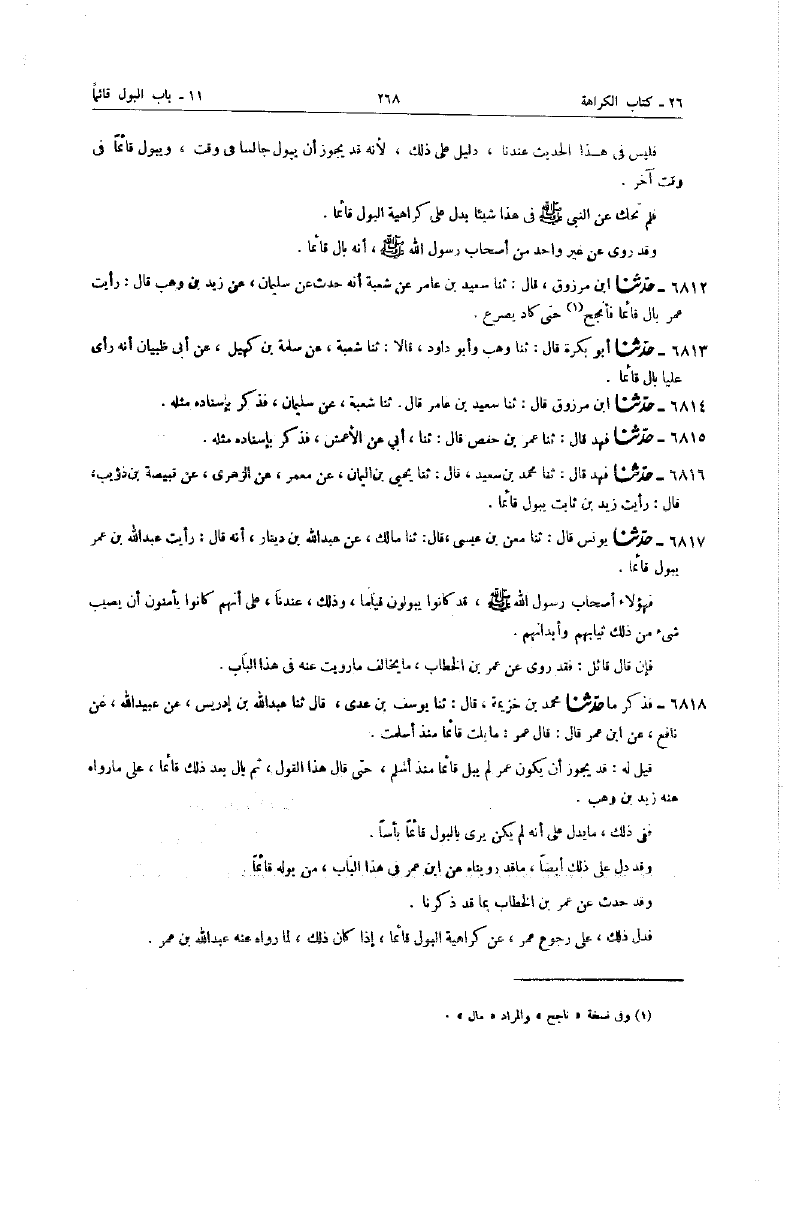 ٢٦ ـ كتاب الكراهة ٢٦٨ ١١ ـ باب البول قائماً
فليس فى هـذا الحديث عندنا ، دليل على ذلك ، لأنه قد يجوز أن يبول جالسا فى وقت ، ويبول قائمًا فى
وقت آخر .
فلم تحك عن النبى ﷺ فى هذا شيئا يدل على كراهية البول قائمًا .
وقد روى عن غير واحد من أصحاب رسول الله ﷺ ، أنه بال قائمًا .
٦٨١٢ ـ حدّثنا ابن مرزوق ، قال : ثنا سعيد بن عامر عن شعبة أنه حدث عن سليمان ، عن زيد بن وهب قال : رأيت
عمر بال قائمًا فأنجح(١) حتى كاد يصرع .
٦٨١٣ ـ حدّثنا أبو بكرة قال : ثنا وهب وأبو داود ، قالا : ثنا شعبة ، عن سلمة بن كهيل ، عن أبى ظبيان أنه رأى
عليا بال قائمًا .
٦٨١٤ ـ حدّثنا ابن مرزوق قال : ثنا سعيد بن عامر قال . ثنا شعبة ، عن سليمان ، فذكر بإسناده مثله .
٦٨١٥ ـ حدّثنا فهد قال : ثنا عمر بن حفص قال : ثنا ، أبي عن الأعمش ، فذكر بإسناده مثله .
٦٨١٦ ـ حدّثنا فهد قال : ثنا محمد بن سعيد ، قال : ثنا يحيى بن اليمان ، عن معمر ، عن الزهرى ، عن قبيصة بن ذؤيب،
قال : رأيت زيد بن ثابت يبول قائمًا .
٦٨١٧ ـ حدّثنا يونس قال : ثنا معن بن عيسى ،قال: ثنا مالك ، عن عبدالله بن دينار ، أنه قال : رأيت عبدالله بن عمر
يبول قائمًا .
فهؤلاء أصحاب رسول الله ﷺ ، قد كانوا يبولون قياما ، وذلك ، عندنا ، على أنهم كانوا يأمنون أن يصيب
شىء من ذلك ثيابهم وأبدانهم .
فإن قال قائل : فقد روى عن عمر بن الخطاب ، مايخالف مارويت عنه فى هذا الباب .
٦٨١٨ ـ فذكر ما حدّثنا محمد بن خزيمة ، قال : ثنا يوسف بن عدى ، قال ثنا عبدالله بن إدريس ، عن عبيدالله ، عن
نافع ، عن ابن عمر قال : قال عمر : مابلت قائمًا منذ أسلمت .
قيل له : قد يجوز أن يكون عمر لم يبل قائمًا منذ أسلم ، حتى قال هذا القول ، ثم بال بعد ذلك قائمًا ، على مارواه
عنه زيد بن وهب .
ففى ذلك ، مايدل على أنه لم يكن يرى بالبول قائمًا بأساً .
وقد دل على ذلك أيضاً ، ماقد رويناه عن ابن عمر فى هذا الباب ، من بوله قائمًا .
وقد حدث عن عمر بن الخطاب بما قد ذكرنا .
فدل ذلك ، على رجوع عمر ، عن كراهية البول قائمًا ، إذا كان ذلك ، لما رواه عنه عبدالله بن عمر .
(١) وفى نسخة « ناجح » والمراد « مال » .